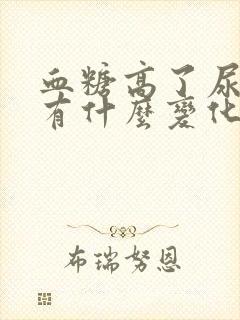 血糖高了尿
有什麼變化
布瑞努恩